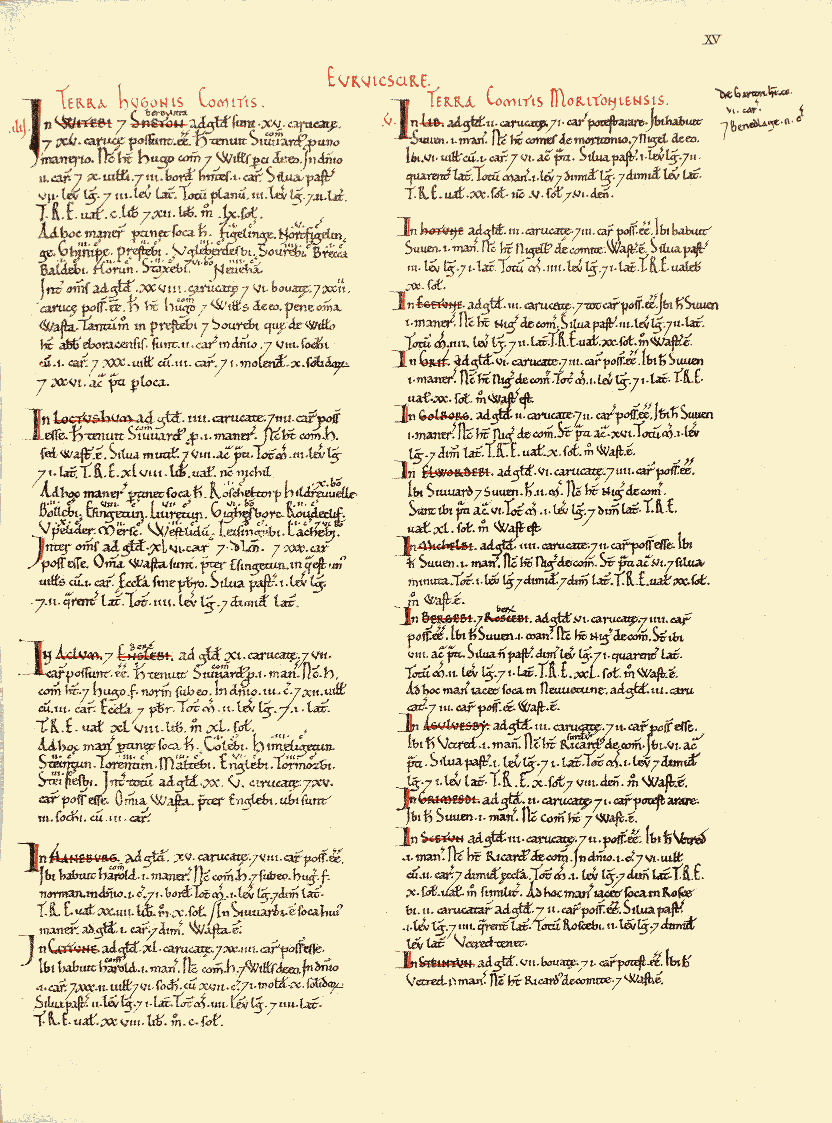 XV
EVRVICSCIRE.
TERRA HUGONIS COMITIS.
.IIII. In WITEBI 7 SNETON bereuuita ad gld sunt .XV. carucatę.
7 XV. carucę possunt. ee. H tenuit Siuuard com p uno
manerio. Nc ht Hugo com 7 Wills pci de eo. In dnio
.II. car 7 X. uilli. 7 III. bord hntes. I. car. Silua past
VII. leu lg. 7 III. leu lat. Totu planu. III. leu lg. 7 II. lat.
T.R.E. ual. c. lib 7 XII. lib. m. lx. sol.
Ad hoc maner ptinet soca h. Figelinge. Nortfigelin
ge. Ghinipe. Prestebi. Ugleberdesbi. Sourebi. Brecca
Baldebi. Florun. Staxebi. Neueha.
Int oms ad gld. XX VIII. carucatę 7 VI. bouatę. 7 XXII.
carucę poss. ee. H ht hugo com 7 Wills de eo. Pene oma
Wasta. Tantum in prestebi 7 Sourebi quę de Willo
ht abb eboracensis. sunt. II. car in dnio. 7 VIII. sochi
cu. I. car. 7 XXX. uilli cu. III. car. 7 I. molend. X. solidoꝝ.
7 XXVI. ac pti p loca.
In LOCTUSHUM ad gld. IIII. carucatę. 7 IIII. car poss
esse. H tenuit Siuuard. p. I. maner. Nc ht com. H.
sed wast. e. Silua minut. 7 VIII. ac pti. Tot m. III. leu lg
7 I. lat. T.R.E. XL VIII. lib. ual. nc nichil.
Ad hoc maner ptinet soca h. Roscheltorp. Hildreuuelle
Bollebi. Esingetun. Liuretun. Gighesbore. Roudeclif.
Upelider. Merse. Westlidu. Lesingebi. Lachebi.
Inter oms ad gld. XL VI. car 7 dim. 7 XXX. car
poss esse. Oma Wasta sunt. pter Esingetun. in q est un
uills cu. I. car. Eccla sine pbro. Silua past. I. leu lg.
7. II. qrent lat. Tot. IIII. leu lg. 7 dimid lat.
In ACLUM. 7 ENGLEBI. bere ad gld XI. carucatę. 7 VII.
car possunt. ee. H tenuit Siuuard com. p. I. man. Nc. H.
com ht. 7 hugo. f. norm sub eo. In dnio. III. c. 7 XII. uilli
cu. III. car. Eccla 7 pbr. Tot m. II. leu lg. 7. I. lat.
T.R.E. ual XL VIII. lib. m XL. sol.
Ad hoc man ptinet soca h. Colebi. Himeligetun.
Steintun. Torentun. Maltebi. Englebi. Tormozbi.
Steinesbi. Int totu ad gld. XX. V. carucatę. 7 XV.
car poss esse. Oma Wasta. pter Englebi. ubi sunt
III. sochi. cu. III. car.
In FLANEBURG. ad gld. XV. carucatę. 7 VIII. car poss. ee.
Ibi habuit harold com. I. maner. Nc com. H. 7 sub eo. Hug. f.
norman. in dnio. I. c. 7 I. bord. Tot m. I. leu lg. 7 dim lat.
T.R.E. ual XX IIII. lib. m. X. sol. In Siuuarbi. e soca hui
maner. ad gld. I. car 7 dim. Wasta. e.
In CATUNE. ad gld. XL. carucatę. 7 XX. IIII. car poss esse.
Ibi habuit harold com. I. man. Nc com. H. 7 Wills de eo. In dnio
.I. car. 7 XXX. II. uilli 7 VI. soch. cu XVII. c. 7 I. mold. X. solidoꝝ.
Silua past. II. leu lg. 7 I. lat. Tot m. IIII. leu lg. 7 IIII. lat.
T.R.E. ual. XX VIII. lib. m. c. sol.
TERRA COMITIS MORITONIENSIS.
De Bartun
VI. car.
V. In LID. ad gld. II. carucatę. 7 I. car potest arare. Ibi habuit
Suuen. I. man. Nc ht comes de moritonio. 7 Nigel de eo.
Ibi. VI. uilli cu. I. car 7 VI. ac pti. Silua past. I. leu lg. 7 II.
quarent lat. Totu man. I. leu 7 dimid lg. 7 dimid leu lat.
T.R.E. ual. XX. sol. nc. V. sol 7 VI. den.
In HOTUNE ad gld. III. carucatę. 7 II. car poss. ee. Ibi habuit
Suuen. I. man. Nc ht Nigell de comite. Wast. e. Silua past
.III. leu lg. 7 I. lat. Totu m. IIII. leu lg. 7 I. lat. T.R.E. ualeb
XX. sol.
In EGTUNE. ad gld. III. carucatę. 7 tot car poss. ee. Ibi h Suuen
.I. maner. Nc ht Nig de com. Silua past. III. leu lg. 7 II. lat.
Totu m. III. leu lg. 7 II. lat. T.R.E. ual. XX. sol. m Wast. e.
In GRIF. ad gld. VI. carucatę. 7 III. car poss. ee. Ibi h Suuen
.I. maner. Nc ht Nig de com. Tot m. I. leu lg. 7 I. lat. T.R.E.
ual. XX. sol. m Wast est.
In GOLBORG. ad gld. II. carucatę. 7 II. car poss. ee. Ibi h Suuen
.I. maner. Nc ht Nig de com. St pti ac. XVI. Totu m. I. leu
lg. 7 dim lat. T.R.E. ual. X. sol. m Wast. e.
In ELWORDEBI. ad gld. VI. carucatę. 7 IIII. car poss. ee.
Ibi Siuuard 7 Suuen. h. II. m. Nc ht Nig de com.
Sunt ibi pti ac. VI. Tot m. I. leu lg. 7 dim lat. T.R.E.
ual XL. sol. m Wast est
In MICHELBI. ad gld. IIII. carucatę. 7 II. car poss esse. Ibi
h Suuen. I. man. Nc ht Nig de com. St pti ac. VI. 7 silua
minuta. Tot. I. leu lg. 7 dimid. 7 dim lat. T.R.E. ual XX sol.
m Wast. e.
In BERGEBI. 7 ROSCEBI. bere ad gld. VI. carucatę. 7 IIII. car
poss. ee. Ibi h Suuen. I. man. Nc ht Nig de com. St ibi
VIII. ac pti. Silua n past. dim leu lg. 7 I. quarent lat.
Totu m. II. leu lg. 7 I. lat. T.R.E. XXL. sol. m Wast. e.
Ad hoc man iacet soca in Neuuetune. ad gld. III. caru
cat. 7 III. car poss. ee. Wast. e.
In ASULUESBY. ad gld. III. carucatę. 7 II. car poss esse.
Ibi h Uctred. I. man. Nc ht Ricard de com. Ibi. VI. ac
pti. Silua past. I. leu lg. 7 I. lat. Tot m. I. leu 7 dimid
lg. 7 I. leu lat. T.R.E. X. sol 7 VIII. den. m Wast. e.
In GRIMESBI. ad gld. II. carucatę. 7 I. car potest arare.
Ibi h Suuen. I. man. Nc Com ht 7 Wast. e.
In SCETUN ad gld III. carucatę. 7 II. poss. ee. Ibi h Uctred
.I. man. Nc ht Ricard de com. In dnio. I. c. 7 VI. uilli
cu. II. car. 7 dimid eccla. Tot m. I. leu lg. 7 dim lat. T.R.E.
X. sol. ual. m similit. Ad hoc man iacet soca in Rosce
bi. II. carucataꝝ ad gld. 7 II. car poss. ee. Silua past.
.I. leu lg. 7 IIII. qrent lat. Totu Roscebi. II. leu lg. 7 dimid
leu lat. Uctred tenet.
In STEINTUN. ad gld. VII. bouatę. 7 I. car potest. ee. Ibi h
Uctred. I. man. Nc ht Ricard de comite. 7 Wast. e.